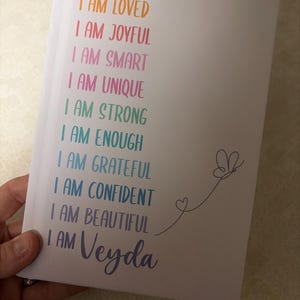 I AM LOVED
I AM JOYFUL
I AM SMART
I AM UNIQUE
I AM STRONG
I AM ENOUGH
I AM GRATEFUL
I AM CONFIDENT
I AM BEAUTIFUL
I AM Veyda